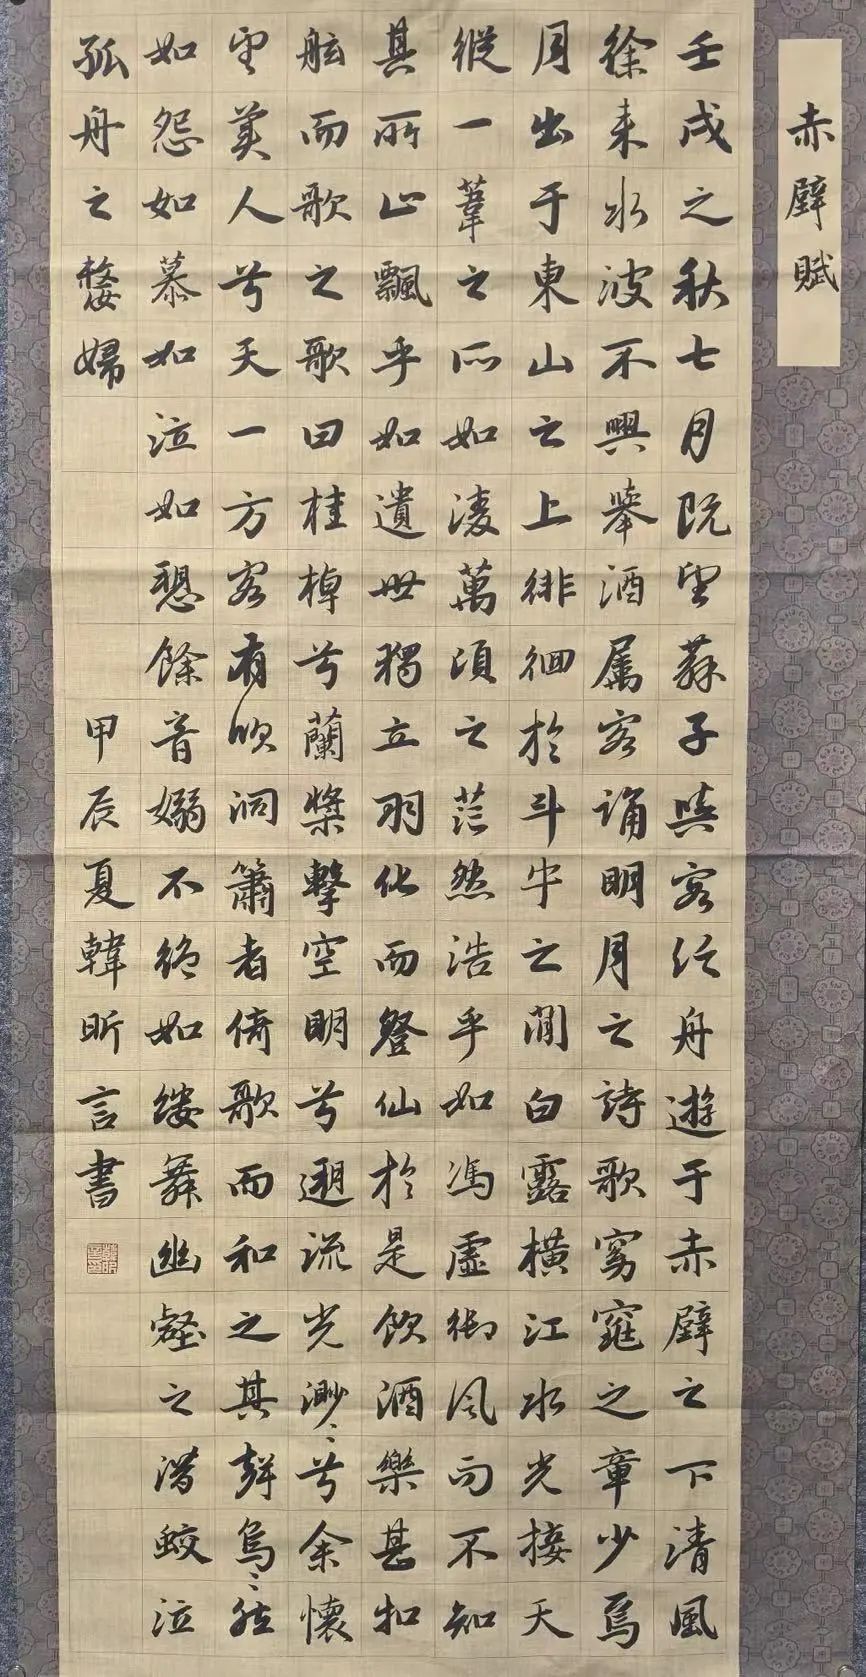 赤壁賦
壬戌之秋七月既望蘇子與客泛舟遊于赤壁之下清風
徐来水波不興舉酒属客誦明月之詩歌窈窕之章少焉
月出于東山之上徘徊於斗牛之間白露橫江水光接天
縱一葦之所如凌萬頃之茫然浩乎如馮虛御風而不知
其所止飄乎如遺世獨立羽化而登仙於是飲酒樂甚扣
舷而歌之歌曰桂棹兮蘭槳擊空明兮遡流光渺〻兮余懷
望美人兮天一方客有吹洞簫者倚歌而和之其聲烏〻然
如怨如慕如泣如愬餘音嫋不絶如縷舞幽壑之潜蛟泣
孤舟之嫠婦
甲辰夏韓昕言書